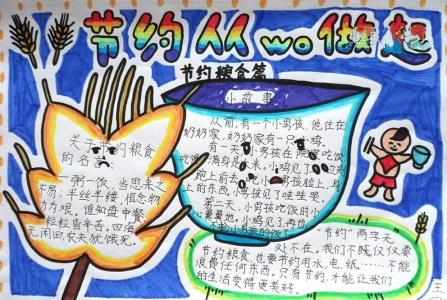 节约从wo做起
节约粮食篇
小故事
从前,有一个小男孩,他住在
奶奶家,奶奶家有一只小鸡。
有一天,小男孩在院
吃饭
吃饭
满身是
米,小鸡见了
跑上前去,吃小男孩脸上,身
上的东西,小男孩见了哇哇哭。
第二天,小男孩吃饭的小
小鸡见了,再也
关于节约粮食
的名言
一粥一饭,当思来之
不易;半丝半缕,恒念物
力为艰。谁知盘中餐
粒粒皆辛苦。四海
无闲田,农夫犹饿死。
“节约”两字无
处不在。我们不能仅仅要
节约粮食,也要节约用水,电,纸……不能
浪费任何东西。只有节约,才能让我们
的生活变得更美好。